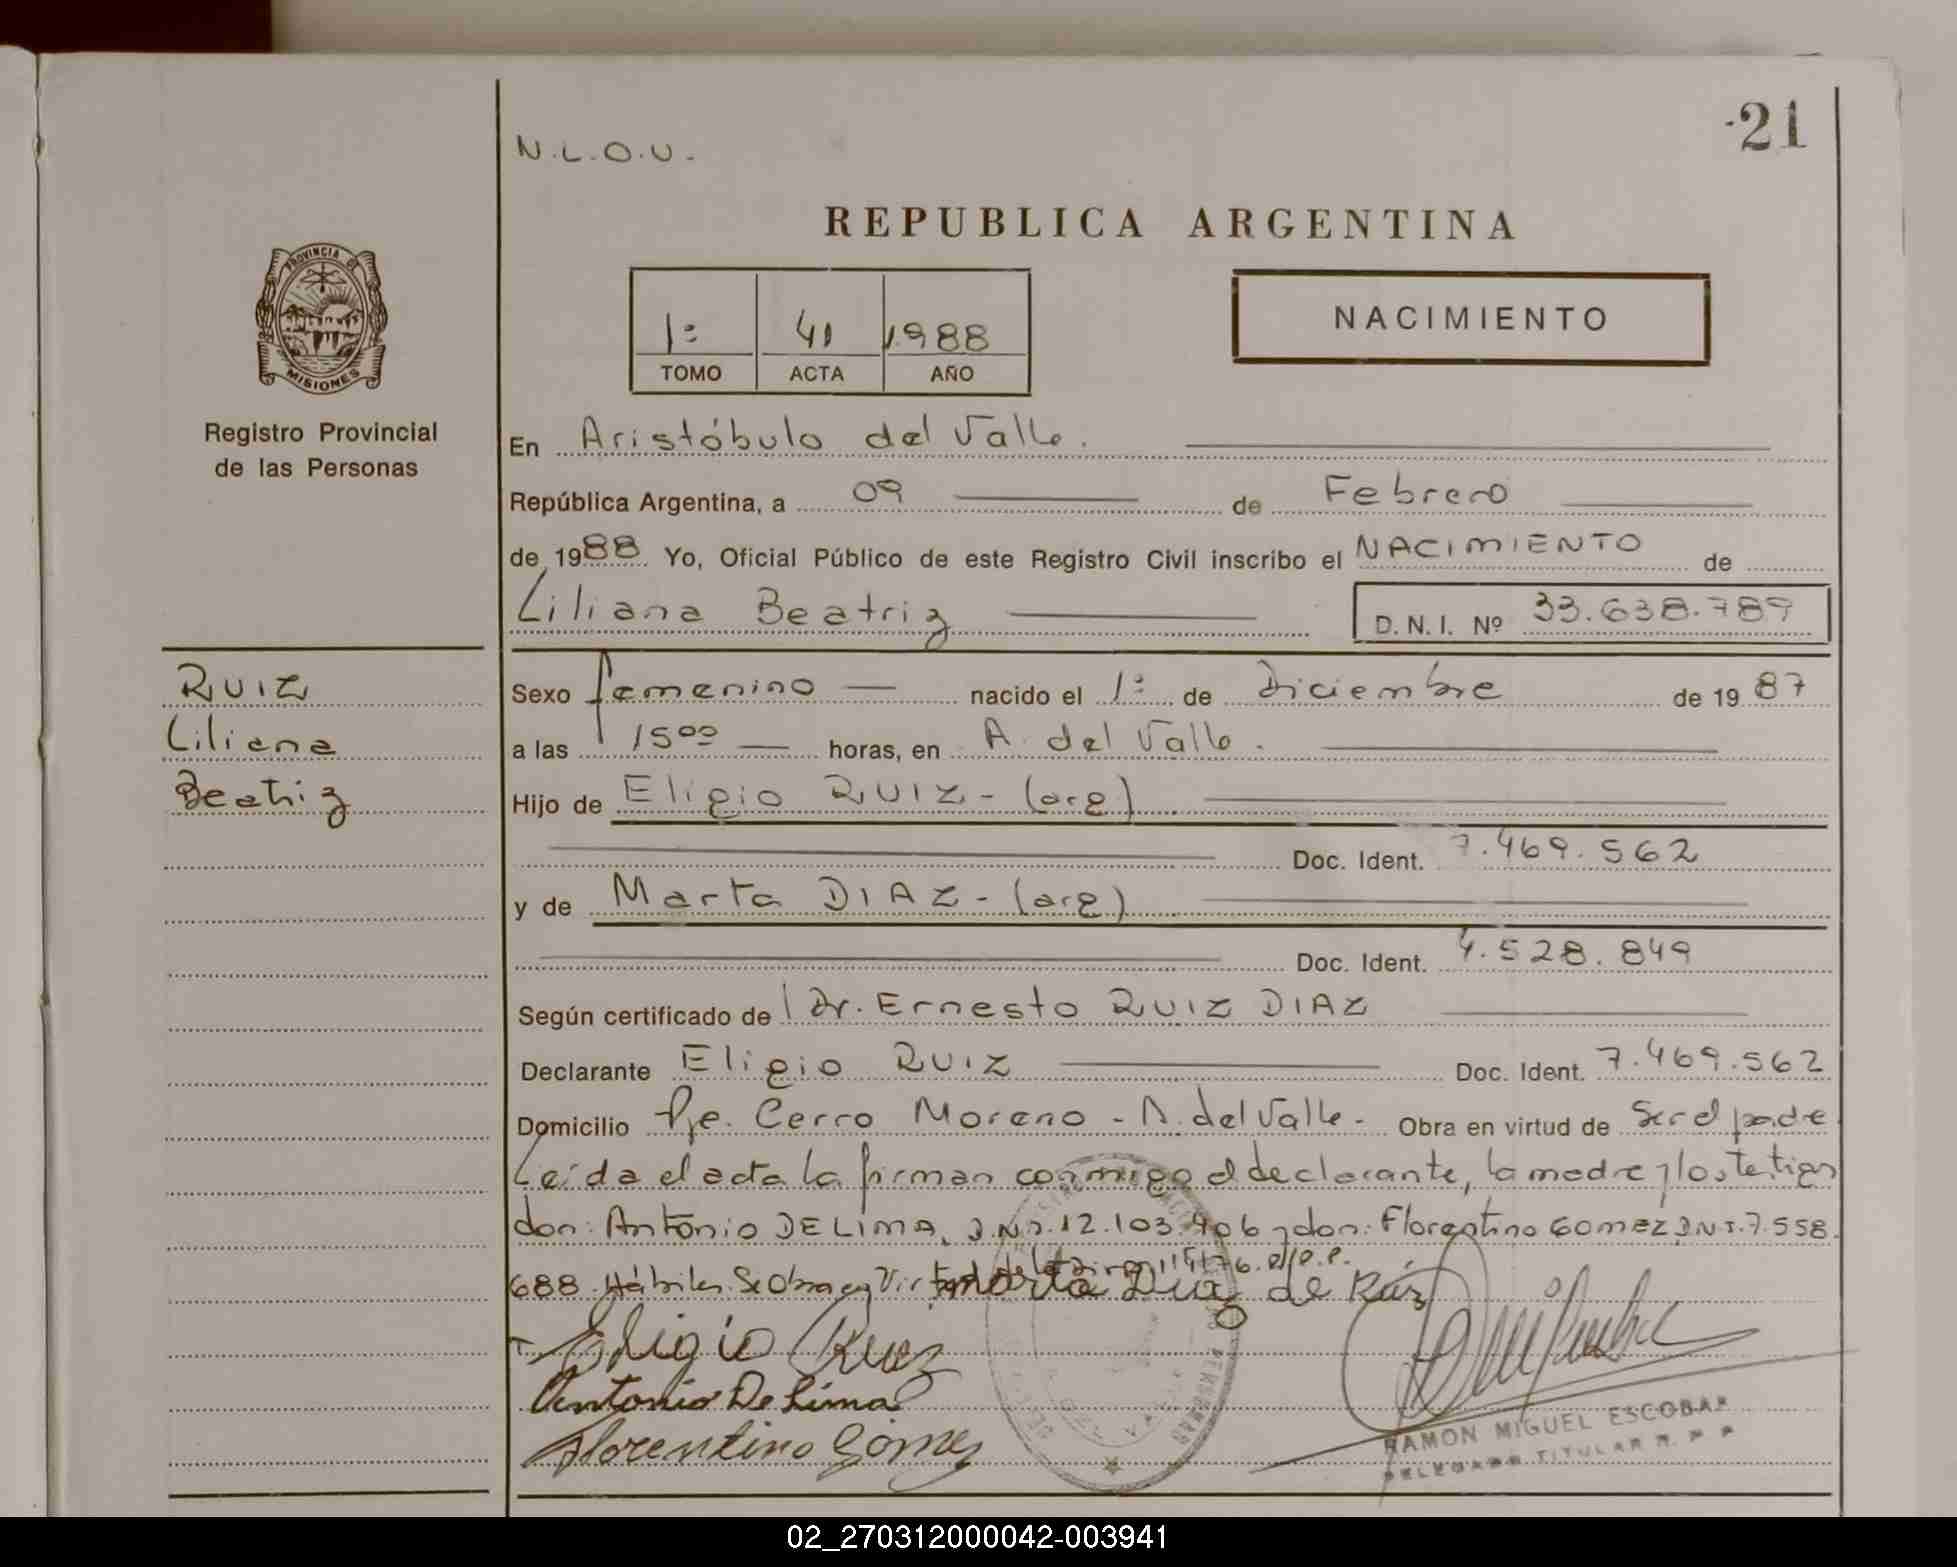 21
N.L.O.U.
REPUBLICA ARGENTINA
PROVINCIA DE
MISIONES
1º 41 1988
TOMO ACTA AÑO
NACIMIENTO
Registro Provincial
de las Personas
En Aristóbulo del Valle.
República Argentina, a 09 de Febrero
de 1988 Yo, Oficial Público de este Registro Civil inscribo el NACIMIENTO de
Liliana Beatriz D.N.I. Nº 33.638.789
RUIZ
Liliana
Beatriz
Sexo femenino nacido el 1º de Diciembre de 1987
a las 15⁰⁰ horas, en A. del Valle.
Hijo de Eligio RUIZ - (arg)
Doc. Ident. 7.469.562
y de Marta DIAZ - (arg)
Doc. Ident. 4.528.849
Según certificado de Dr. Ernesto RUIZ DIAZ
Declarante Eligio RUIZ Doc. Ident. 7.469.562
Domicilio Pje. Cerro Moreno - A. del Valle - Obra en virtud de Ser el padre
Leída el acta la firman conmigo el declarante, la madre y los testigos
don: Antonio DE LIMA, D.N.I. 12.103.406 y don: Florentino GOMEZ D.N.I. 7.558.
688. Hábiles. Se Obra en Virtud de la 
Marta Diaz de Ruiz
Eligio Ruiz
Antonio De Lima
Florentino Gómez
RAMON MIGUEL ESCOBAR
DELEGADO TITULAR R. P. P.
02_270312000042-003941